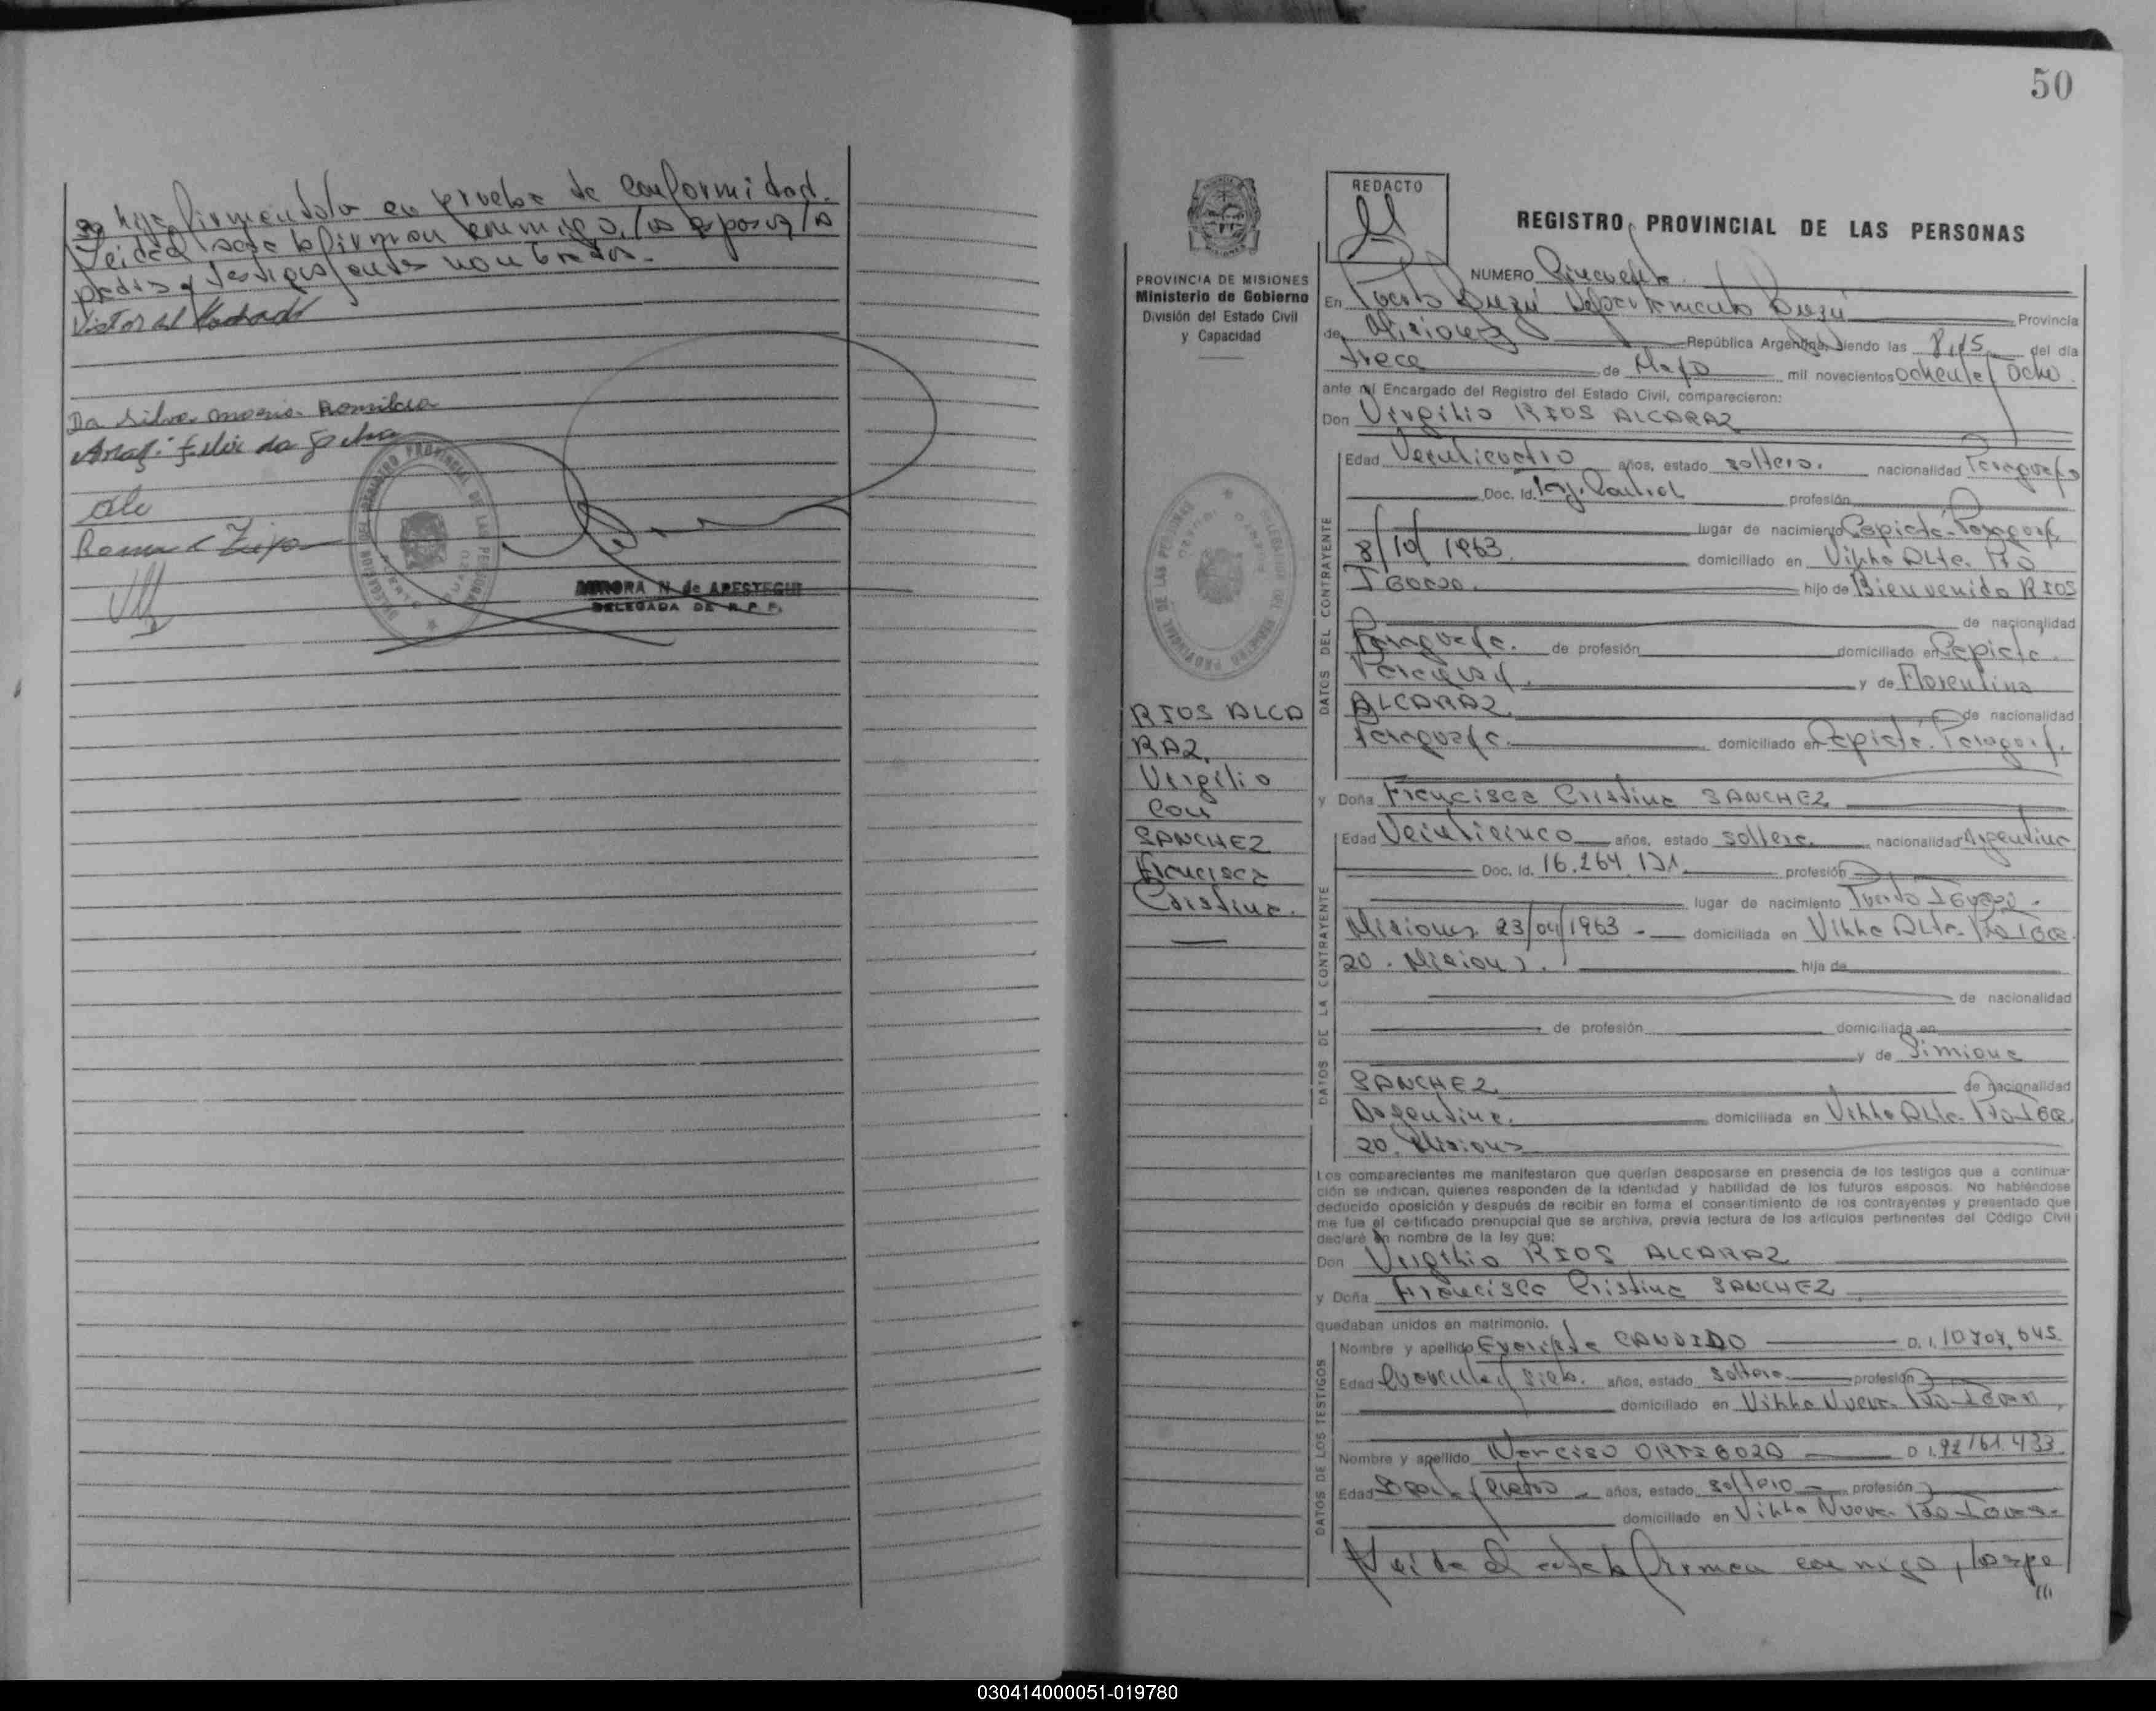 su hija firmandola en prueba de conformidad.
Leida el acta la firman conmigo, los esposos, la
padres y testigos antes nombrados.-
Victor
Da Silva maria Romilda
felix da Silva
AURORA N. de APESTEGUI
DELEGADA DE R. P. P.
50
REDACTO
REGISTRO PROVINCIAL DE LAS PERSONAS
PROVINCIA DE MISIONES
Ministerio de Gobierno
División del Estado Civil
y Capacidad
RIOS ALCA
RAZ
Virgilio
Con
SANCHEZ
Francisca
Cristina.
NUMERO Cincuenta
En Puerto Iguazú Departamento Iguazú Provincia
de Misiones República Argentina, siendo las 8,15 del día
trece de Mayo mil novecientos ochenta y ocho.
ante mí Encargado del Registro del Estado Civil, comparecieron:
Don Virgilio RIOS ALCARAZ
DATOS DEL CONTRAYENTE
Edad Veinticuatro años, estado soltero. nacionalidad Paraguayo
Doc. Id. Policial profesión
lugar de nacimiento Capiatá-Paraguay
8/10/1963 domiciliado en Villa Alta. Pto
Iguazú. hijo de Bienvenido RIOS
de nacionalidad
Paraguaya. de profesión domiciliado en Capiatá
Paraguay. y de Florentina
ALCARAZ de nacionalidad
Paraguaya. domiciliado en Capiatá. Paraguay.
y Doña Francisca Cristina SANCHEZ
DATOS DE LA CONTRAYENTE
Edad Veinticinco años, estado soltera. nacionalidad Argentina
Doc. Id. 16.264.131 profesión
lugar de nacimiento Puerto Iguazú.
Misiones 23/04/1963 - domiciliada en Villa Alta. Pto Igua
zu. Misiones. hija de
de nacionalidad
de profesión domiciliada en
y de Simiona
SANCHEZ de nacionalidad
Argentina. domiciliada en Villa Alta. Pto-Igua
zu. Misiones
Los comparecientes me manifestaron que querían desposarse en presencia de los testigos que a continua-
ción se indican, quienes responden de la identidad y habilidad de los futuros esposos. No habiéndose
deducido oposición y después de recibir en forma el consentimiento de los contrayentes y presentado que
me fue el certificado prenupcial que se archiva, previa lectura de los artículos pertinentes del Código Civil
declaré en nombre de la ley que:
Don Virgilio RIOS ALCARAZ
y Doña Francisca Cristina SANCHEZ
quedaban unidos en matrimonio.
DATOS DE LOS TESTIGOS
Nombre y apellido CANDIDO D. I. 10.707.645
Edad Cuarenta y siete. años, estado soltero profesión
domiciliado en Villa Nueva. Pto-Iguazu
Nombre y apellido Narciso ORTIGOZA D I. 92.161.433
Edad años, estado soltero profesión
domiciliado en Villa Nueva. Pto-Iguazu.
Leida el acta la firman conmigo, los espo
///
030414000051-019780